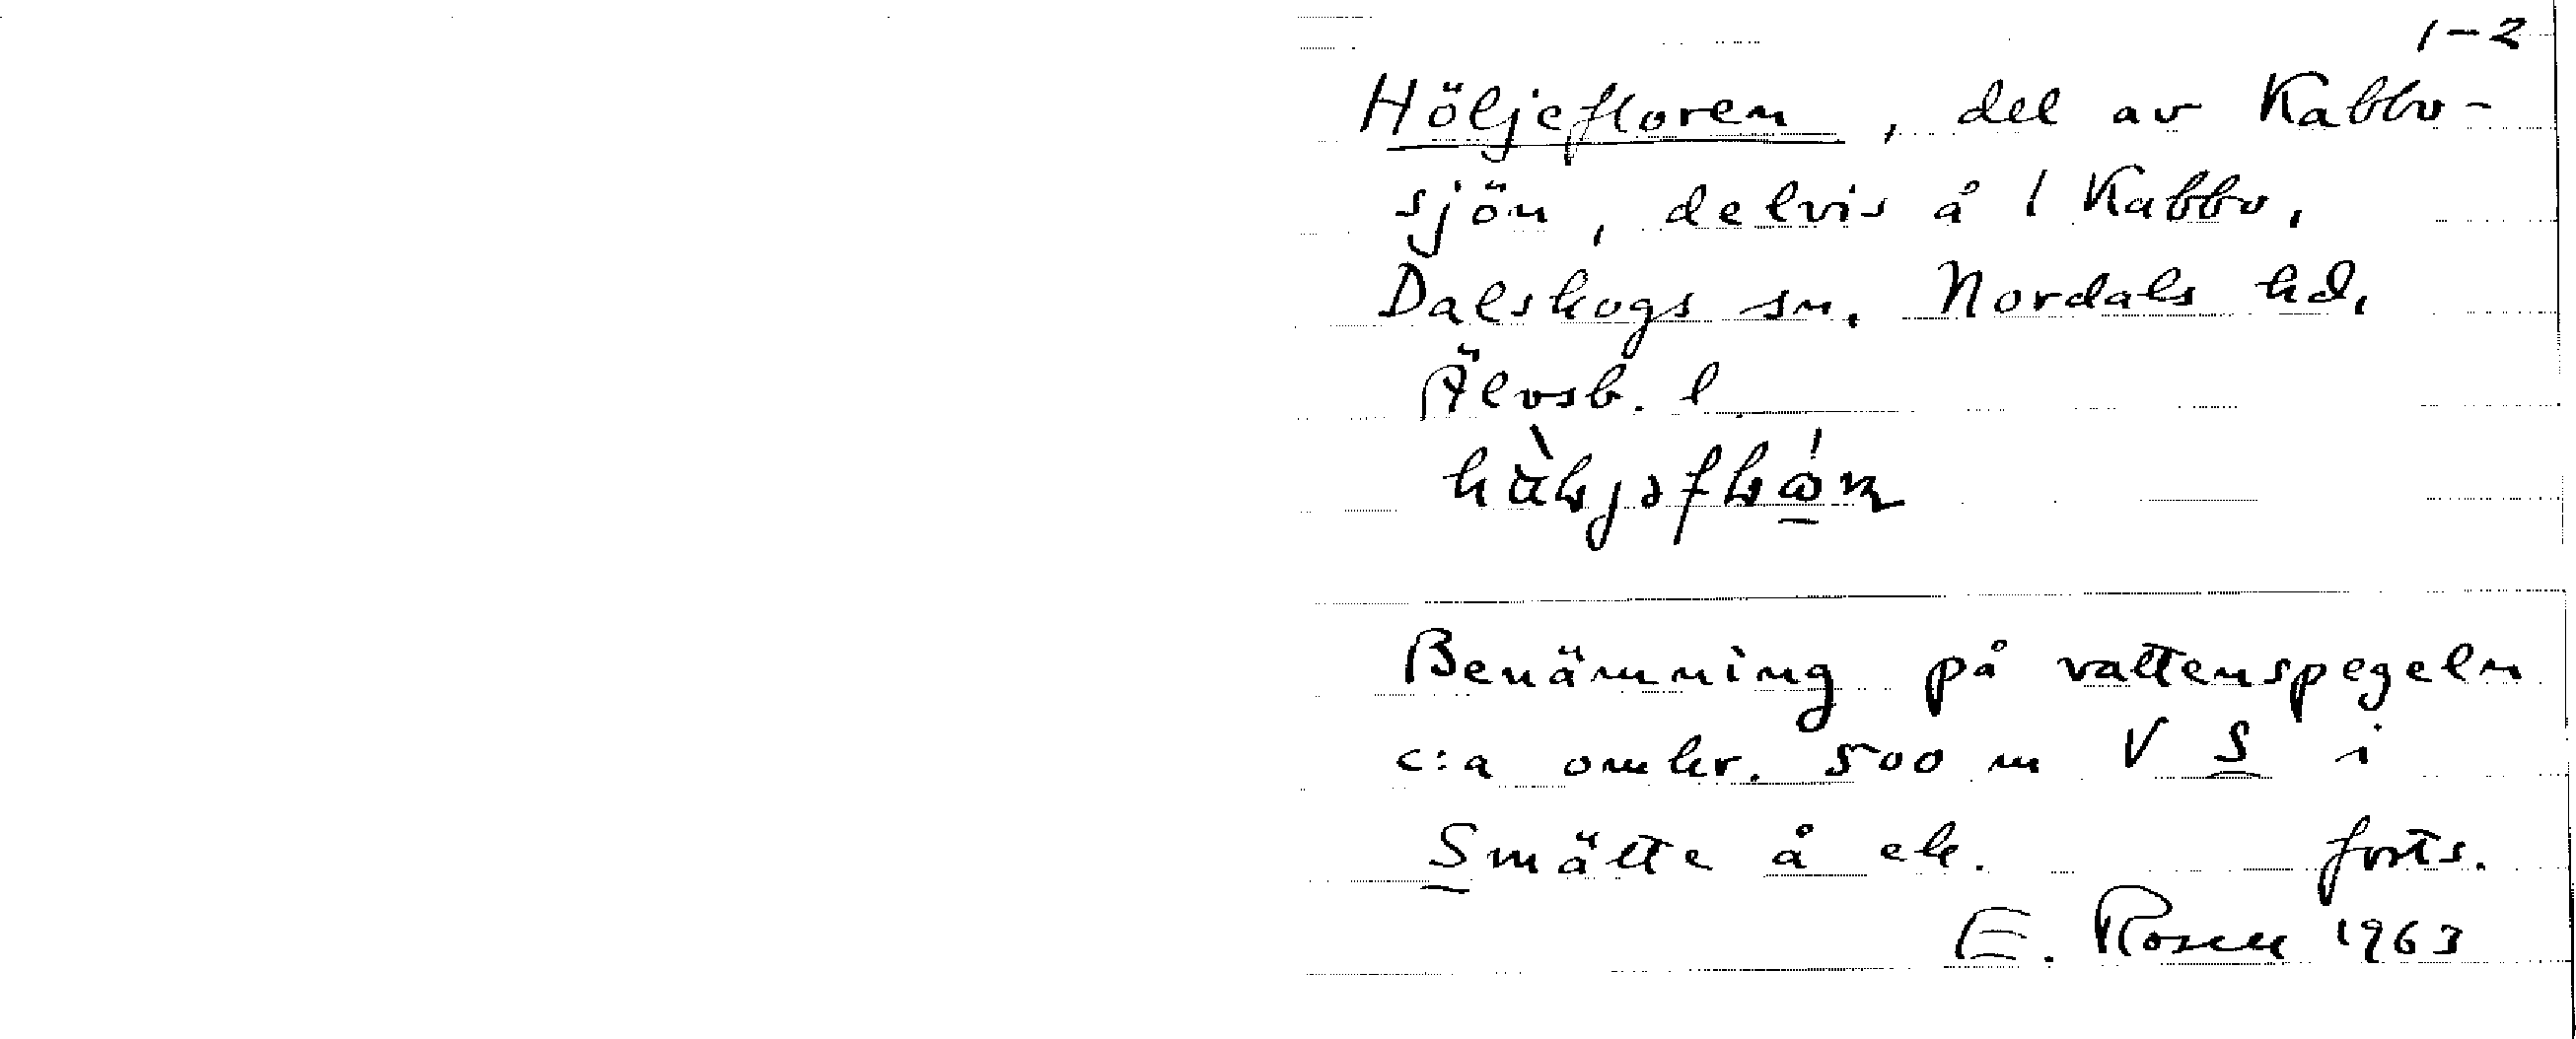 1-2
Höljefloren, del av Kabbo-
sjön, delvis å 1 Kabbo,
Dalskogs sn. Nordals hd,
Älvsb. l
Benämning på vattenspegeln
c:a omkr. 500 m V S i
Smätte å ek. forts.
E. Rosen 1963